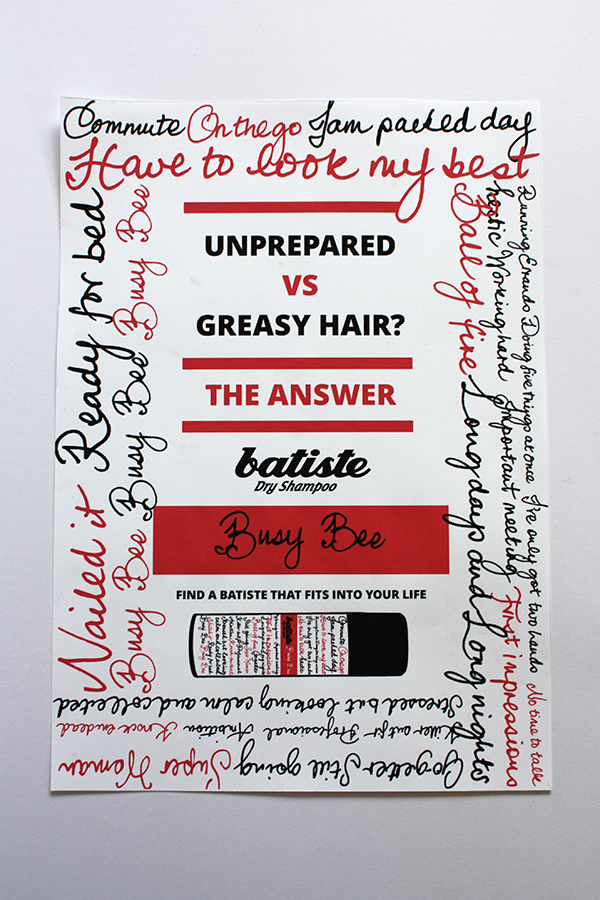 Commute On the go Jam packed day
Have to look my best
UNPREPARED
VS
GREASY HAIR?
THE ANSWER
batiste
Dry Shampoo
Busy Bee
FIND A BATISTE THAT FITS INTO YOUR LIFE
batiste
Running Errands Doing five things at once I've only got two hands No time to talk
hectic Working hard Important meeting First impressions
Ball of fire Long days and Long nights
Go getter Still going Super Woman
Killer outfit Professional Ambition Knock em dead
Stressed but looking calm and collected
Nailed it Ready for bed
Busy Bee Busy Bee Busy Bee Busy Bee